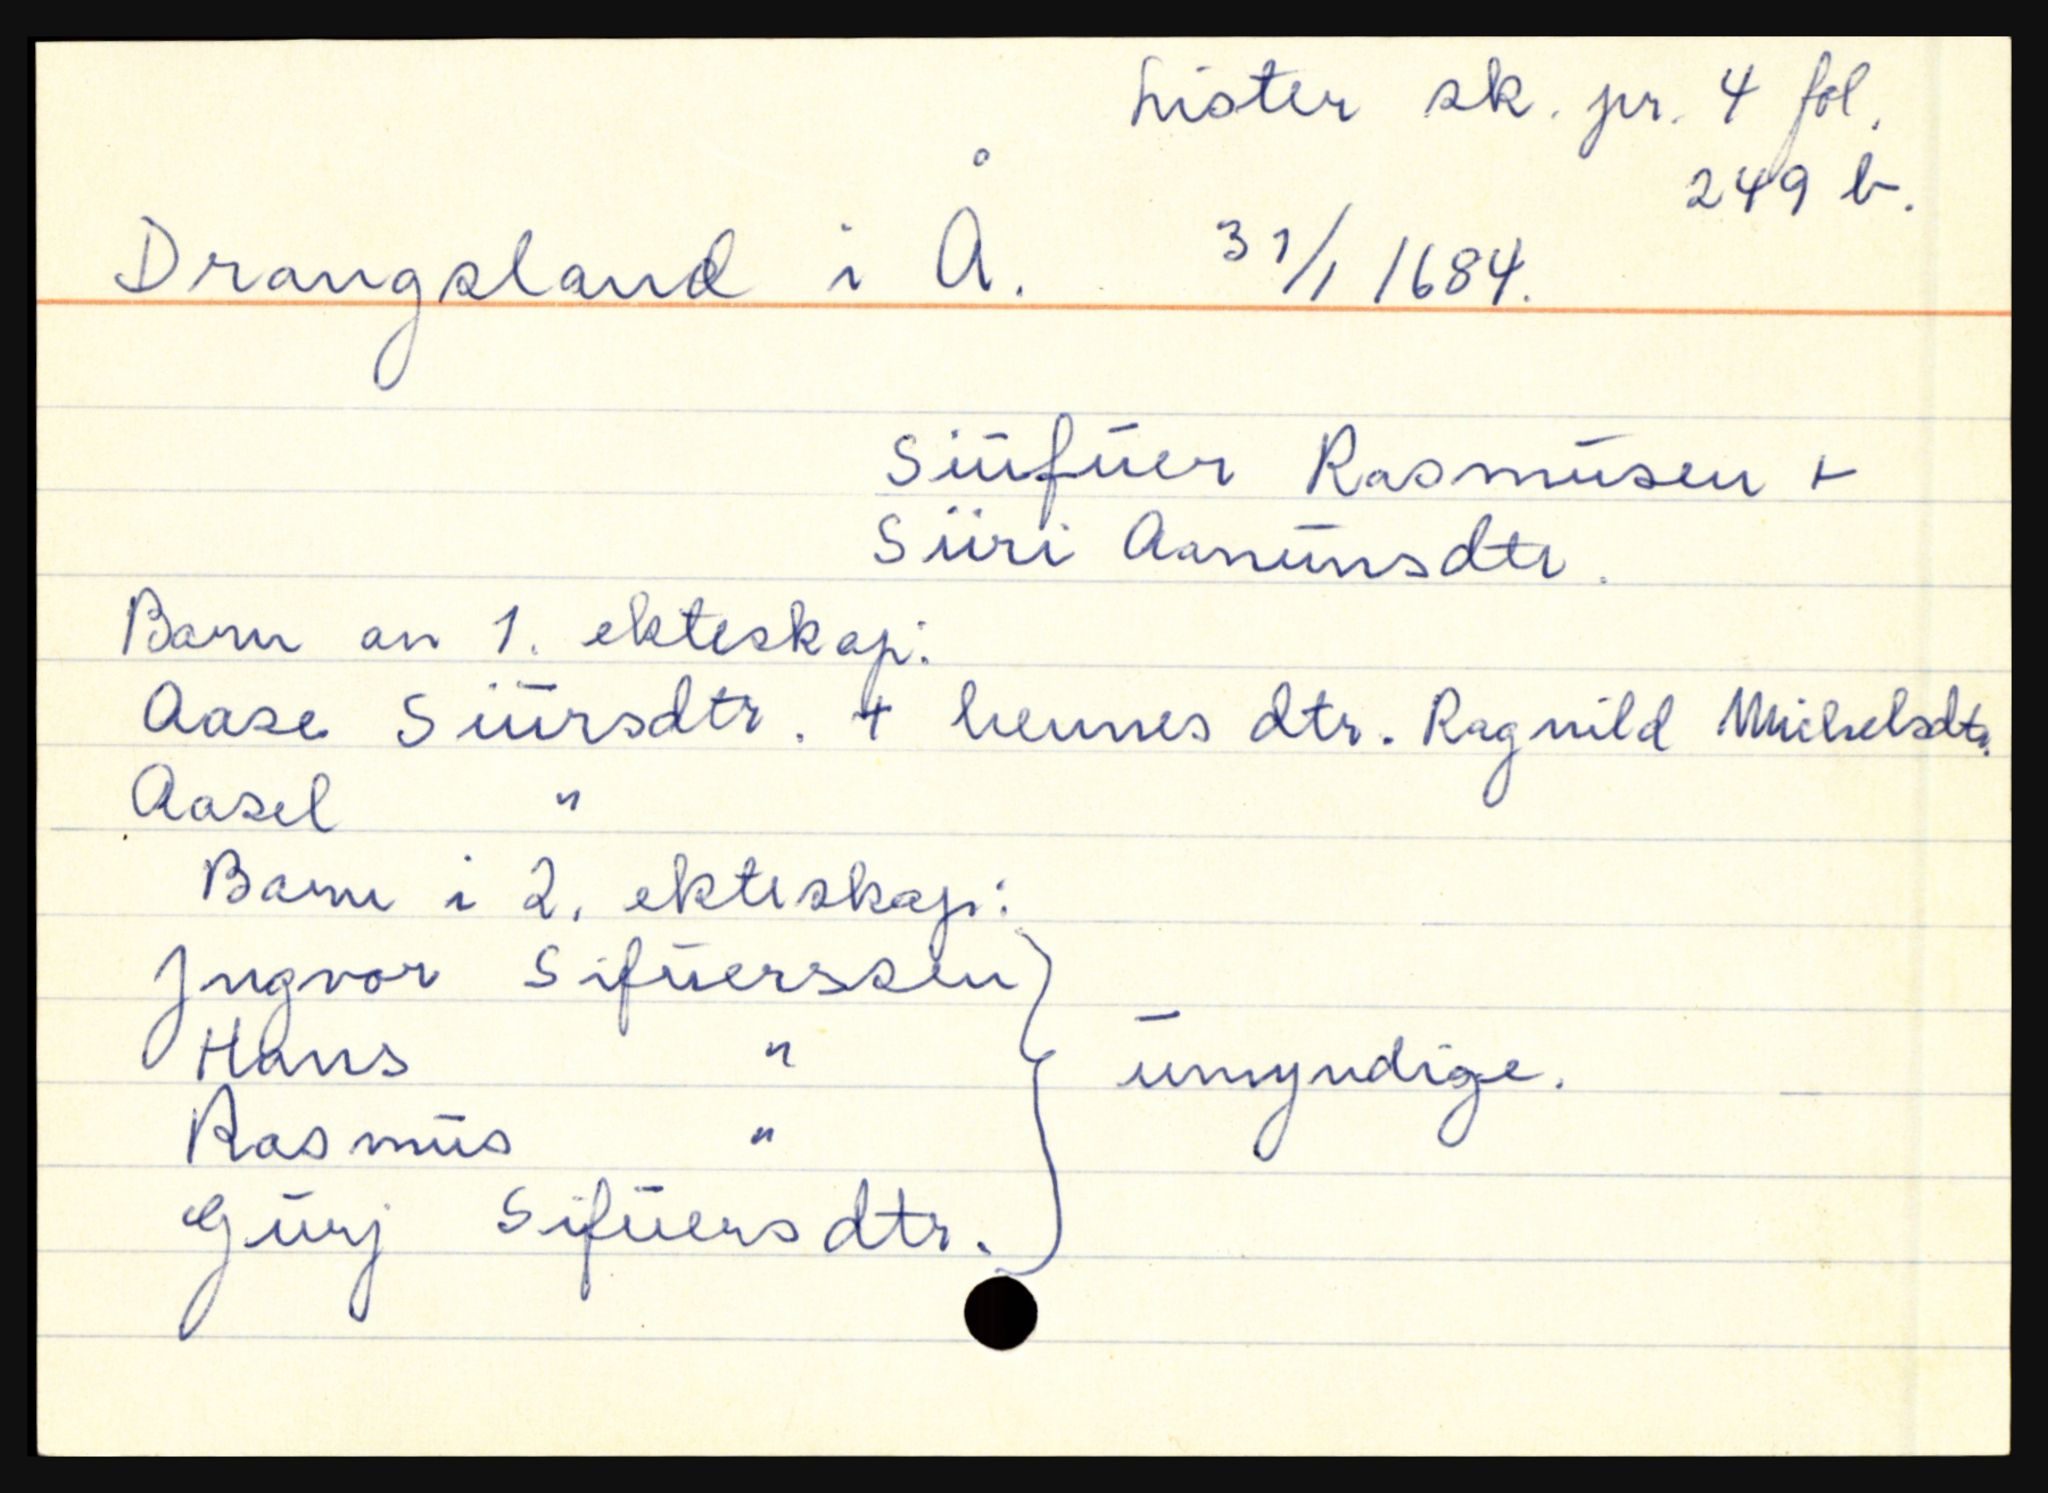 Lister sk. pr. 4 fol.
249 b.
Drangsland i Å. 31/1 1684.
Siufuer Rasmusen +
Siiri Aanunsdtr.
Barn av 1. ekteskap:
Aase Siursdtr. + hennes dtr. Ragnild Michelsdtr.
Aasel "
Barn i 2. ekteskap:
Ingvor Sifuerssen
Hans " umyndige.
Rasmus "
Gurj Sifuersdtr.